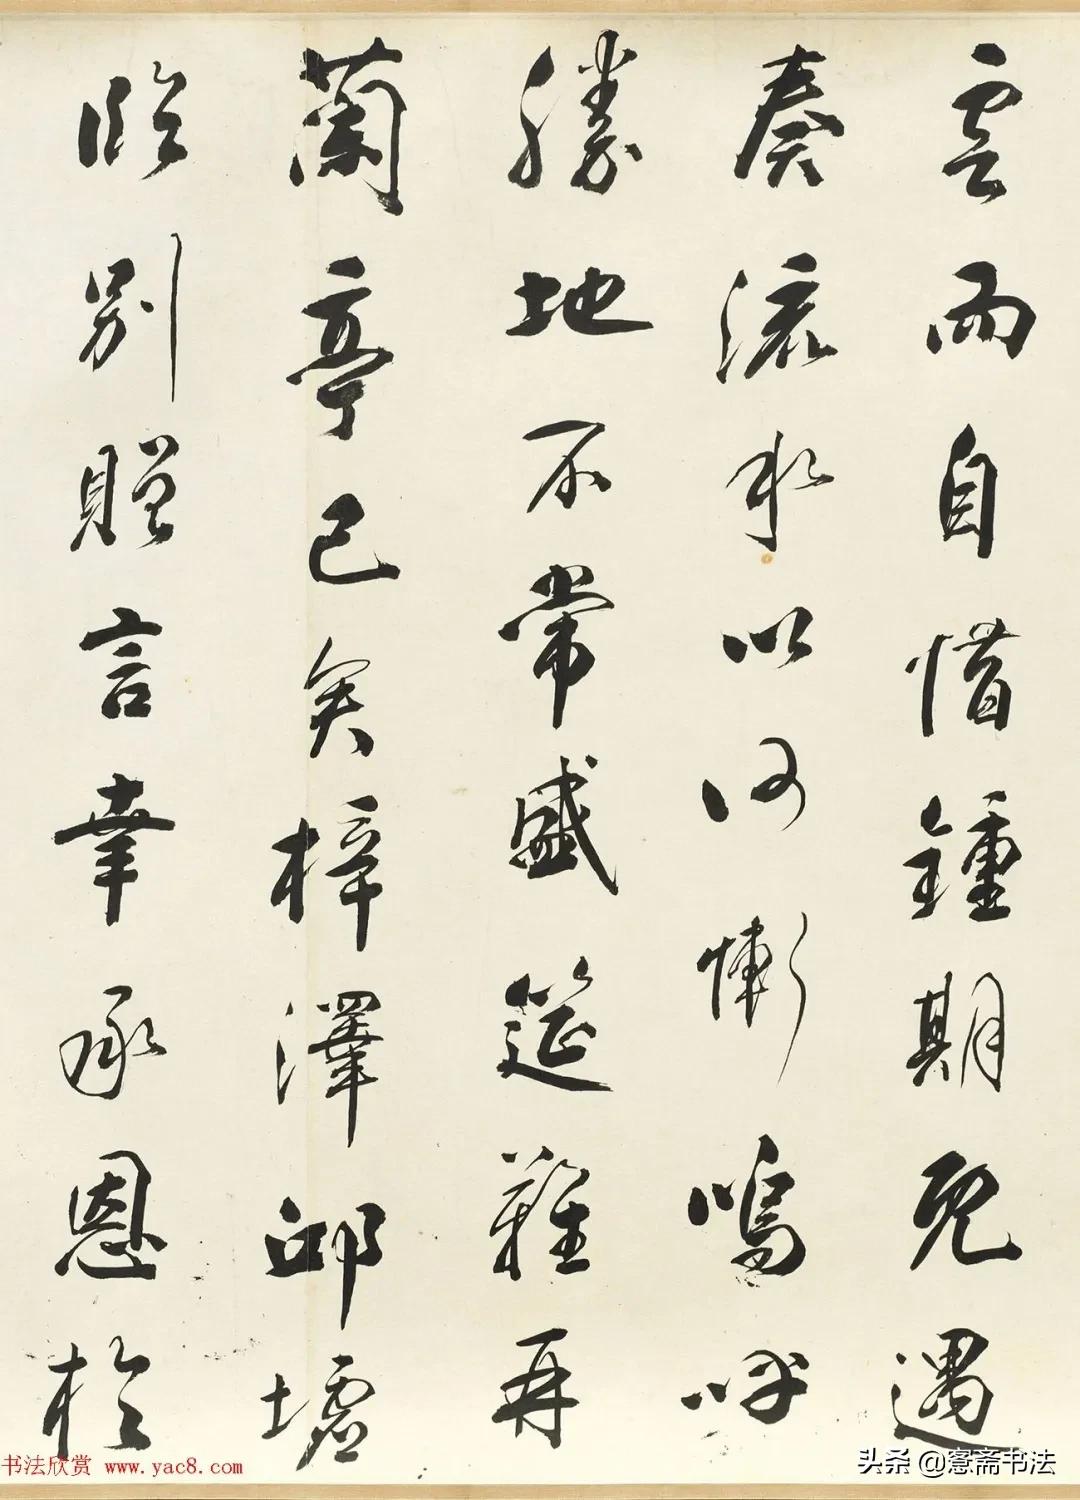 雲而自惜鍾期既遇
奏流水以何慚嗚呼
勝地不常盛筵難再
蘭亭已矣梓澤邱墟
臨別贈言幸承恩於
书法欣赏 www.yac8.com
头条 @窓斋书法